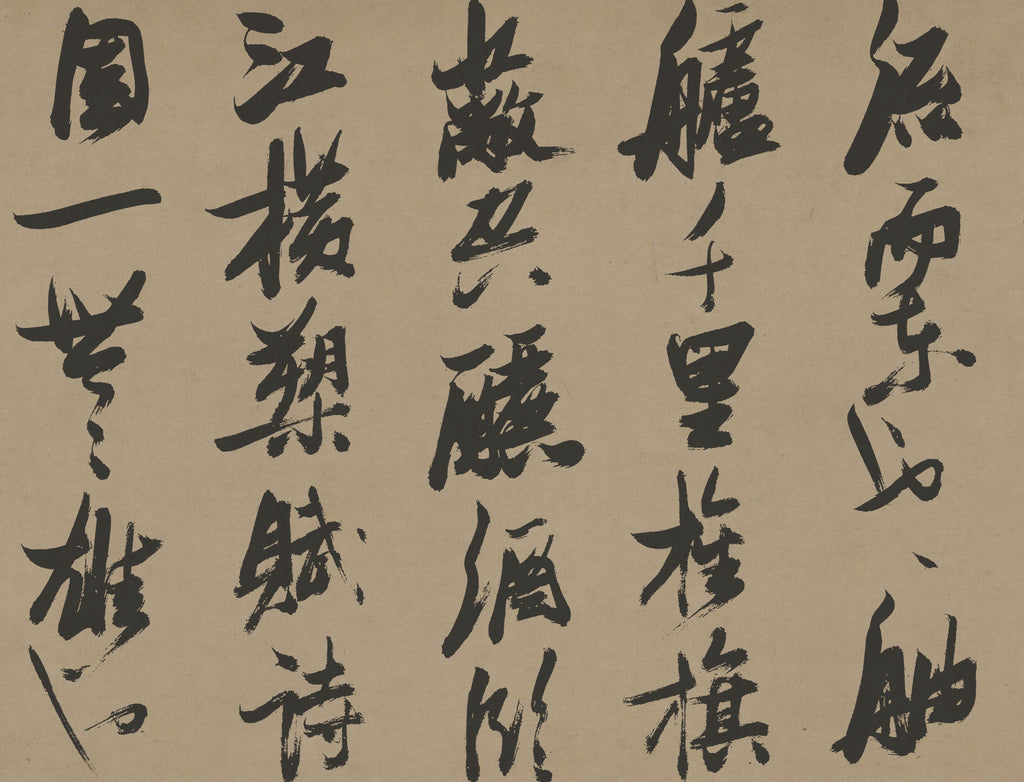 流而東也舳
艫千里旌旗
蔽空釃酒臨
江橫槊賦詩
固一世之雄也